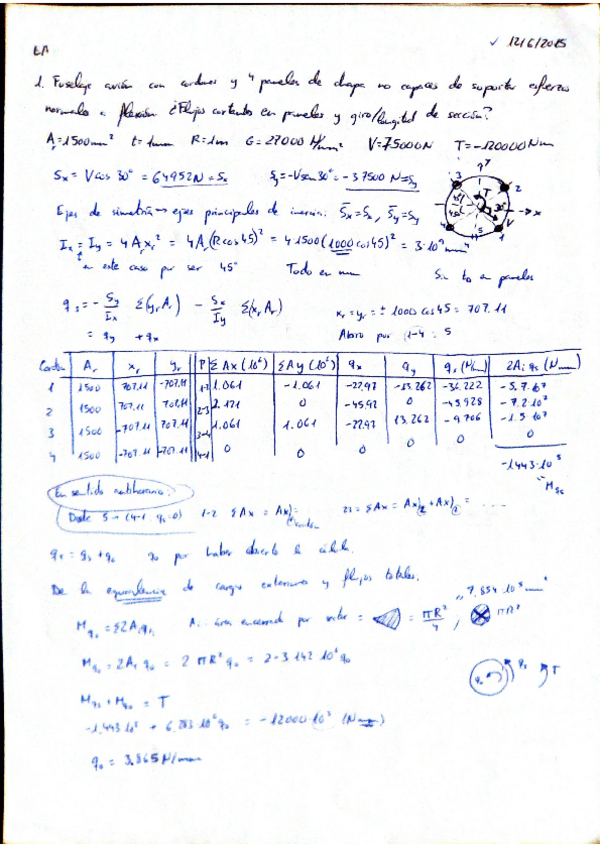 EA
✓ 12/6/2015
1. Fuselaje avión con cordones y 4 paneles de chapa no capaces de soportar esfuerzos
normales a flexión ¿Flujos cortantes en paneles y giro/longitud de sección?
Ar=1500mm² t=1mm R=1m G=27000 N/mm² V=75000N T=-120000Nm
Sx = Vcos 30° = 64952N = Sx Sy=-Vsen30° = -37500 N=Sy
Ejes de simetría → ejes principales de inercia: S̄x=Sx, S̄y=Sy
Ix = Iy = 4 Ar xr² = 4Ar(Rcos45)² = 4·1500(1000cos45)² = 3·10⁹ mm⁴
en este caso por ser 45° Todo en mm Sin tD en paneles
qs = - Sy/Ix Σ(yr Ar) - Sx/Iy Σ(xr Ar) xr=yr= ± 1000 cos45 = 707.11
= qy + qx Abro por (1-4 = 5
Cordón Ar xr yr P ΣAx(10⁶) ΣAy(10⁶) qx qy qs(N/mm) 2Ai qs (Nmm)
1 1500 707.11 -707.11 1-2 1.061 -1.061 -22.97 -13.262 -36.222 -5.7·10⁷
2 1500 707.11 707.11 2-3 2.121 0 -45.92 0 -45.928 -7.2·10⁷
3 1500 -707.11 707.11 3-4 1.061 1.061 -22.97 13.262 -9.706 -1.5·10⁷
4 1500 -707.11 -707.11 4-1 0 0 0 0 0 0
-1443·10⁵
Mqs
En sentido antihorario:
Desde 5 → (4-1, qs=0) 1-2 ΣAx = Ax)₁ 23 = ΣAx = Ax)₁ + Ax)₂ = ....
qT = qs + q₀ q₀ por haber abierto la célula.
De la equivalencia de cargas exteriores y flujos totales.
Mqs = Σ2Ai qi, Ai = área encerrada por sector = πR²/4, πR²
7.854·10⁵mm²
Mq₀ = 2Ai q₀ = 2 πR² q₀ = 2·3.142·10⁶q₀
Mqs + Mq₀ = T
-1.443·10⁸ + 6.283·10⁶ q₀ = -12000·10³ (Nmm)
q₀ = 3.865N/mm